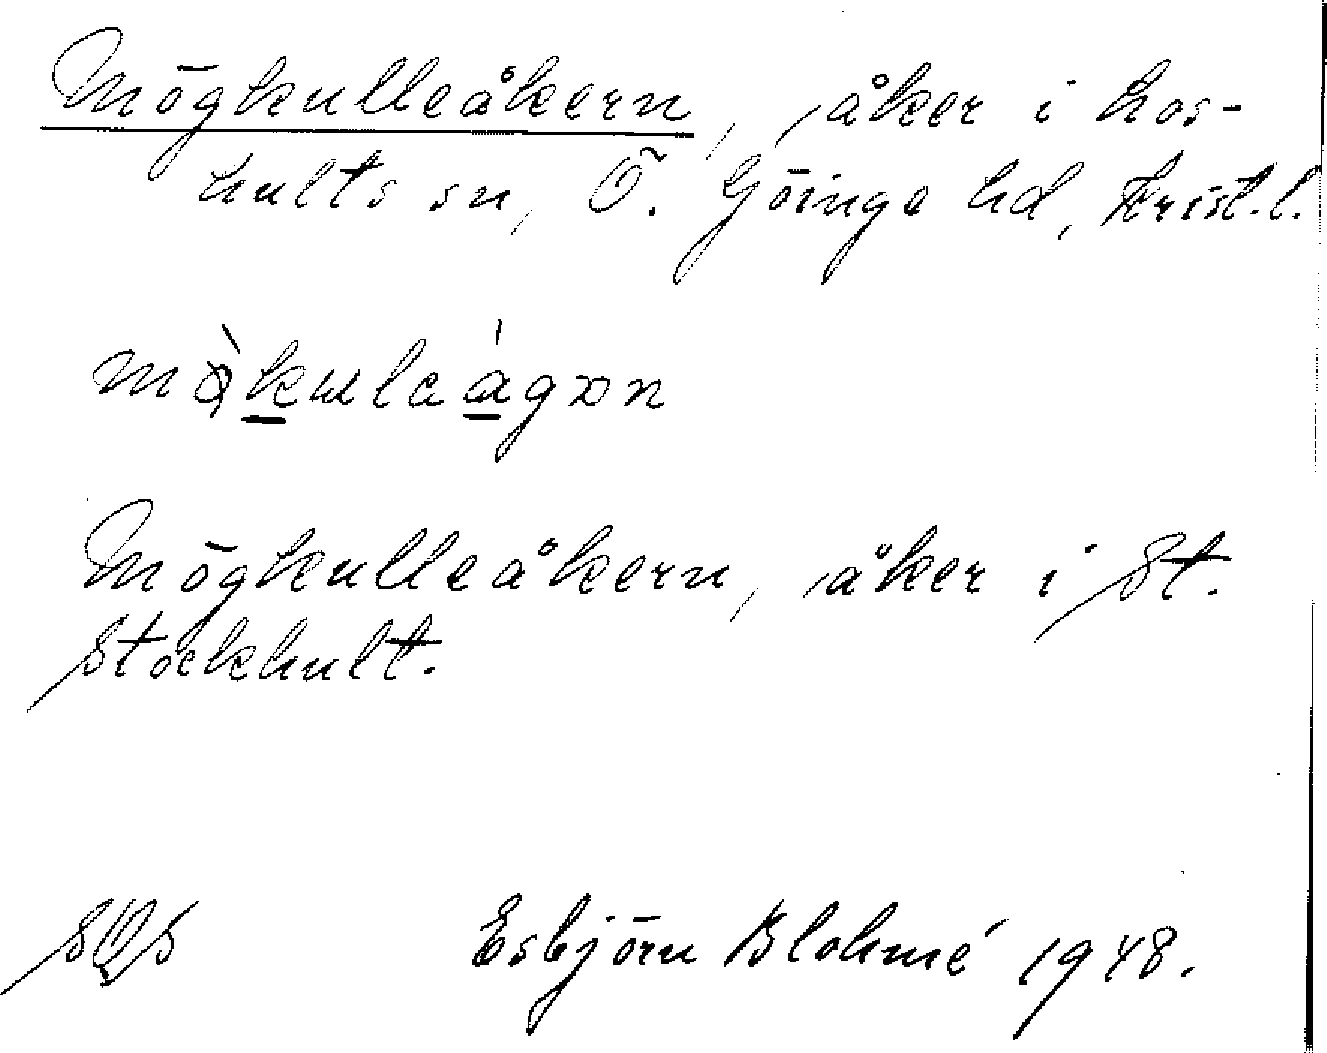 Mögkulleåkern, åker i Los-
hults sn, Ö. Göinge hd, Krist.l.
Mögkulleåkern, åker i St.
Stockhult.
Esbjörn Blohmé 1948.